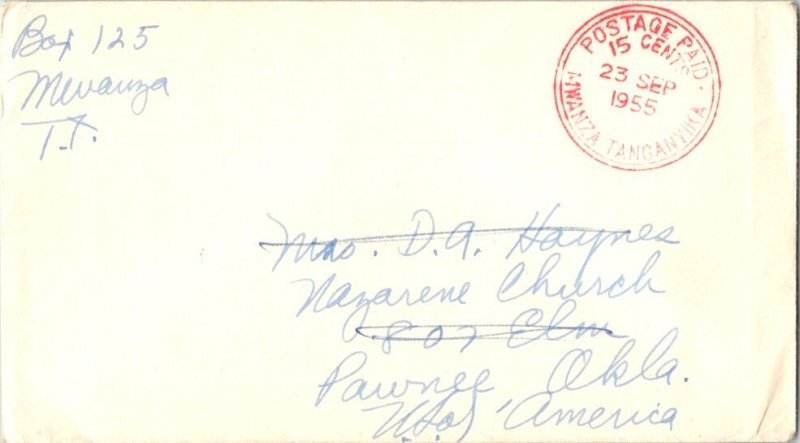 Box 125
Mwanza
T.T.
POSTAGE PAID.
15 CENTS
23 SEP
1955
MWANZA TANGANYIKA
Mrs. D.A. Haynes
Nazarene Church
807 Elm
Pawnee Okla.
U.S. of America